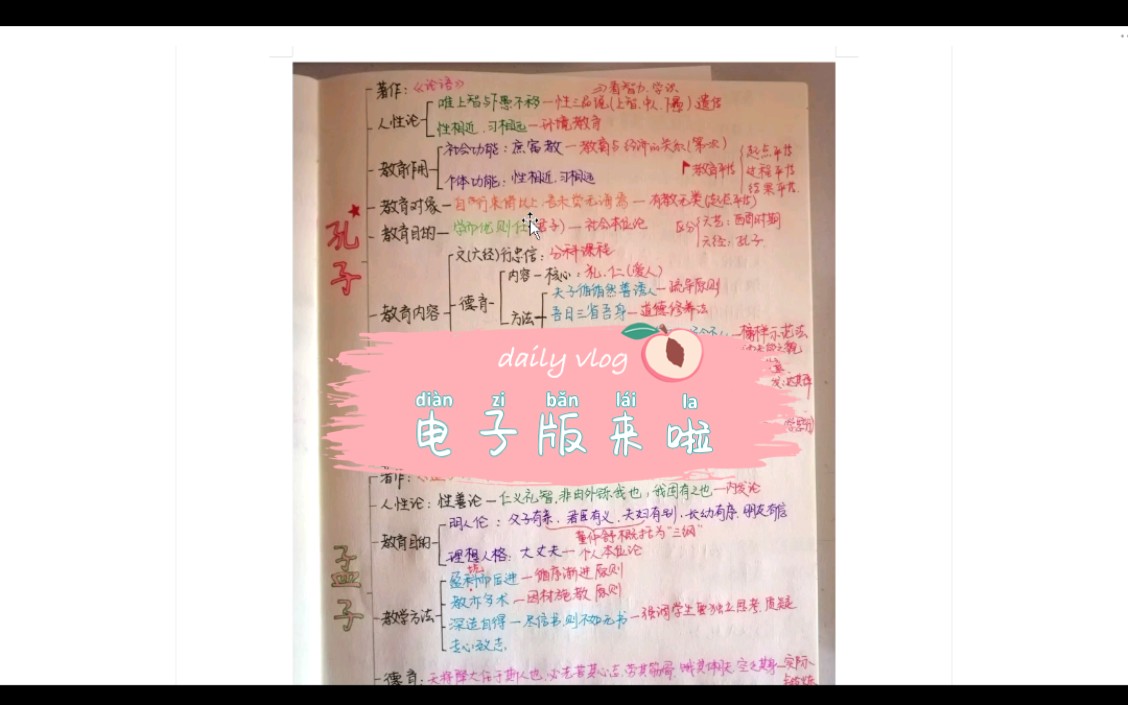 著作：《论语》
看智力、学识
人性论
唯上智与下愚不移—性三品说(上智、中人、下愚)遗传
性相近,习相远—环境教育
教育作用
社会功能：庶富教—教育与经济的关系(第一次)
个体功能：性相近,习相远
教育平等
起点平等
过程平等
结果平等
教育对象—自行束脩以上,吾未尝无诲焉—有教无类(起点平等)
教育目的—学而优则仕(君子)—社会本位论
区分
六艺：西周时期
六经：孔子
孔子
文(六经)行忠信：分科课程
教育内容
德育
内容—核心：礼、仁(爱人)
方法
夫子循循然善诱人—疏导原则
吾日三省吾身—道德修养法
榜样示范法
daily vlog
diàn zi bǎn lái la
电子版来啦
著作：
人性论：性善论—仁义礼智,非由外铄我也,我固有之也—内发论
教育目的
明人伦：父子有亲,君臣有义,夫妇有别,长幼有序,朋友有信
董仲舒概括为“三纲”
理想人格：大丈夫—个人本位论
孟子
教学方法
盈科而后进—循序渐进原则
教亦多术—因材施教原则
深造自得—尽信书,则不如无书—强调学生要独立思考,质疑
专心致志
德育：天将降大任于斯人也,必先苦其心志,劳其筋骨,饿其体肤,空乏其身—实际